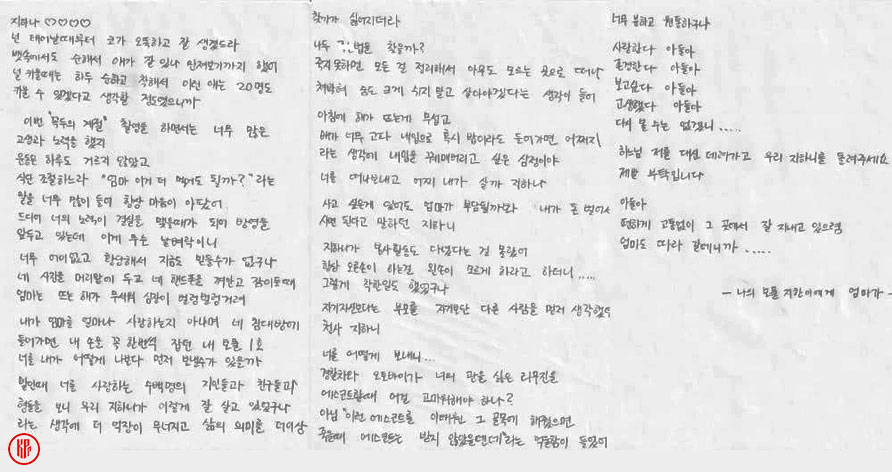 지하나 ♡♡♡♡
넌 태어날때부터 코가 오똑하고 잘 생겼드라
뱃속에서도 순해서 얘가 잘 있나 만져보기까지 했어
널 키울때는 하두 순하고 착해서 이런 애는 20명도
키울 수 있겠다고 생각할 정도였으니까
이번 "꼭두의 계절" 촬영을 하면서는 너무 많은
고생과 노력을 했지
운동은 하루도 거르지 않았고
식단 조절하느라 "엄마 이거 더 먹어도 될까?" 라는
말을 너무 많이 들어 항상 마음이 아팠어
드디어 너의 노력이 결실을 맺을때가 되어 방영을
앞두고 있는데 이게 무슨 날벼락이니
너무 어이없고 황당해서 지금도 믿을수가 없구나
네 사진을 머리맡에 두고 네 핸드폰을 껴안고 잠이들때
엄마는 뜨는 해가 무서워 심장이 벌렁벌렁거려
내가 엄마를 얼마나 사랑하는지 아냐며 네 침대방에
들어가면 내 손을 꼭 한번씩 잡던 내 보물 1호
너를 내가 어떻게 나보다 먼저 보낼수가 있을까
발인때 너를 사랑하는 수백명의 지인들과 친구들과
형들을 보니 우리 지하니가 이렇게 잘 살고 있었구나
라는 생각에 더 억장이 무너지고 삶의 의미를 더이상
찾기가 싫어지더라
나두 것을까?
죽지못하면 모든 걸 정리해서 아무도 모르는 곳으로 떠나
쳐박혀 숨도 크게 쉬지 말고 살아야겠다는 생각이 들어
아침에 해가 뜨는게 무섭고
배가 너무 고파
라는 생각에 내일을 꾸메버리고 싶은 심정이야
너를 떠나보내고 어찌 내가 살까 지하나
사고 싶은게 있어도 엄마가 부담될까봐 내가 돈 벌어서
사면 된다고 말하던 지하니
지하니가 봉사활동도 다녔다는 걸 몰랐어
항상 오른손이 하는걸 왼손이 모르게 하라고 하더니.....
그렇게 착한일도 했었구나
자기자신보다는 부모를 자기보단 다른 사람을 먼저 생각했던
천사 지하니
너를 어떻게 보내니...
경찰차와 오토바이가 너의 관을 실은 리무진을
에스코트할때 이걸 고마워해야 하나?
아님 "이런 에스코트를 이태원 그 골목에 해줬으면
죽을때 에스코트는 받지 않았을텐데" 라는 억울함이 들었어
너무 분하고 원통하구나
사랑한다 아들아
존경한다 아들아
보고싶다 아들아
고생했다 아들아
다시 볼 수는 없겠니.....
하느님 저를 대신 데려가고 우리 지하니를 돌려주세요
제발 부탁입니다
아들아
편하게 고통없이 그 곳에서 잘 지내고 있으렴
엄마도 따라 갈테니까.....
- 나의 보물 지한이에게 엄마가 -